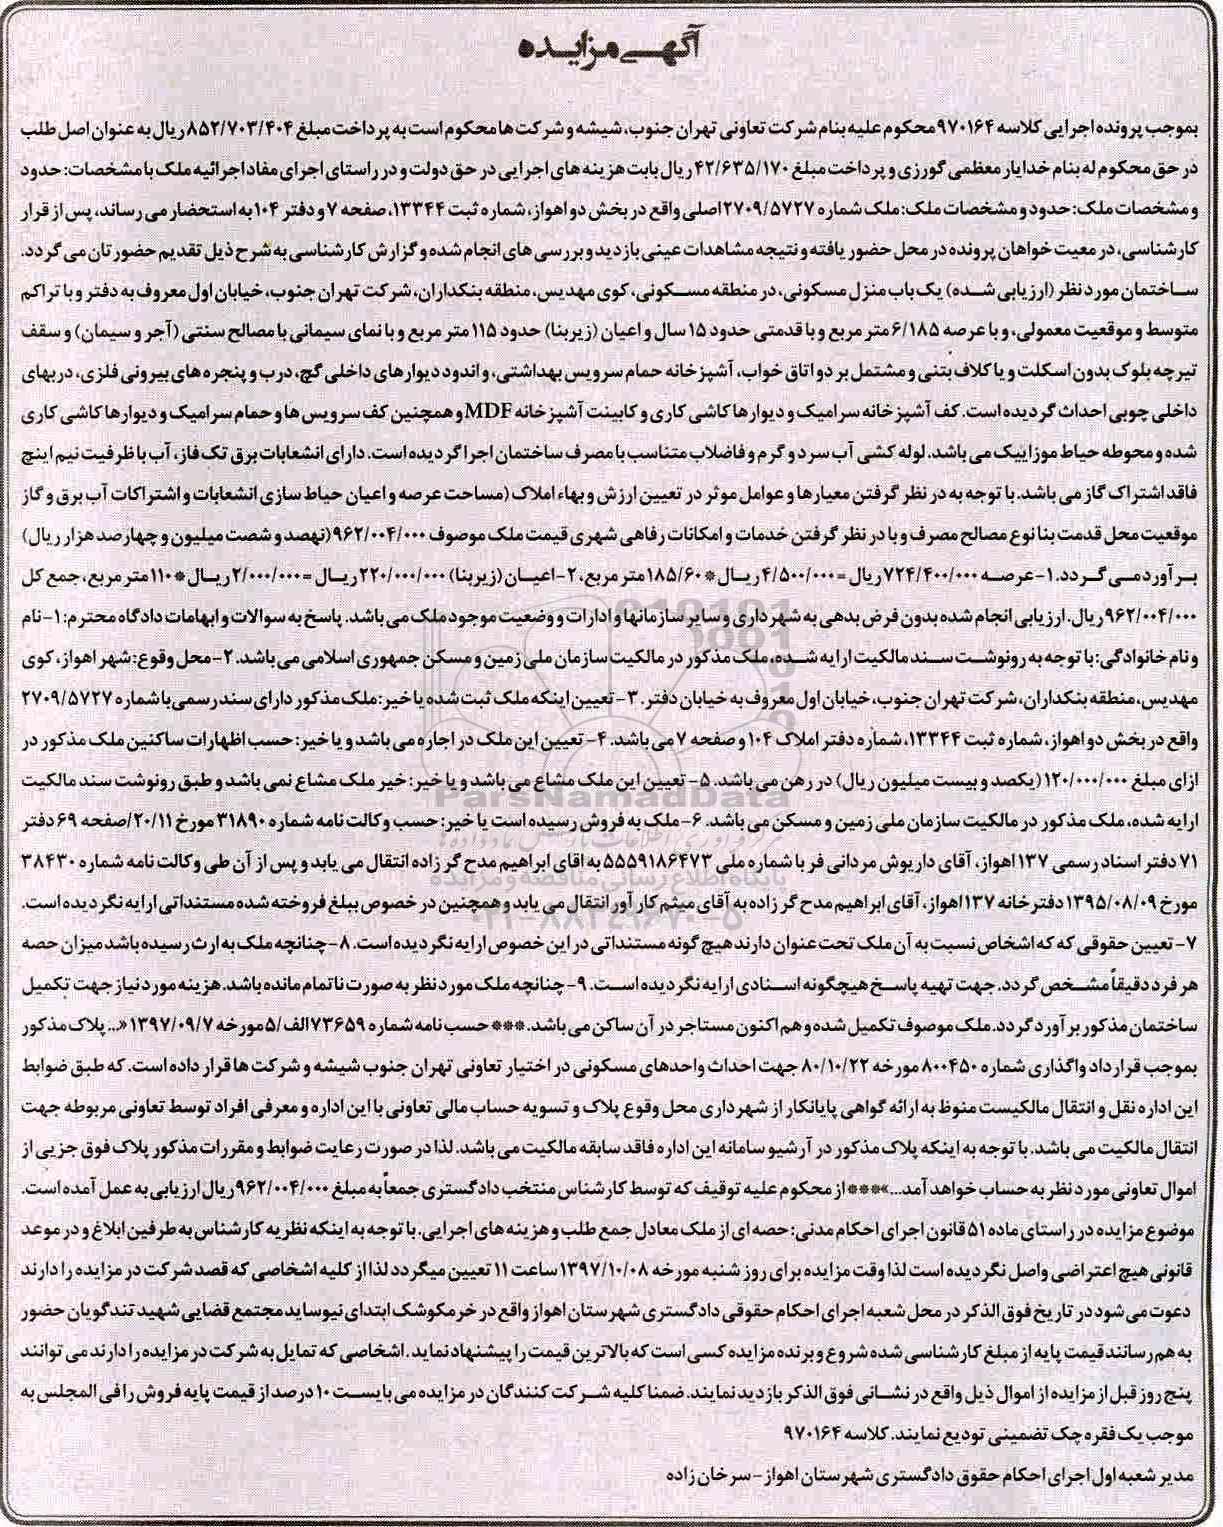 آگهی مزایده
بموجب پرونده اجرایی کلاسه ۹۷۰۱۶۴ محکوم علیه بنام شرکت تعاونی تهران جنوب، شیشه و شرکت ها محکوم است به پرداخت مبلغ ۸۵۲/۷۰۳/۴۰۴ ریال به عنوان اصل طلب
در حق محکوم له بنام خدایار معظمی گورزی و پرداخت مبلغ ۴۲/۶۳۵/۱۷۰ ریال بابت هزینه های اجرایی در حق دولت و در راستای اجرای مفاد اجرائیه ملک با مشخصات: حدود
و مشخصات ملک: حدود و مشخصات ملک: ملک شماره ۲۷۰۹/۵۷۲۷ اصلی واقع در بخش دو اهواز، شماره ثبت ۱۳۳۴۴، صفحه ۷ و دفتر ۱۰۴ به استحضار می رساند، پس از قرار
کارشناسی، در معیت خواهان پرونده در محل حضور یافته و نتیجه مشاهدات عینی بازدید و بررسی های انجام شده و گزارش کارشناسی به شرح ذیل تقدیم حضورتان می گردد.
ساختمان مورد نظر (ارزیابی شده) یک باب منزل مسکونی، در منطقه مسکونی، کوی مهدیس، منطقه بنکداران، شرکت تهران جنوب، خیابان اول معروف به دفتر و با تراکم
متوسط و موقعیت معمولی، و با عرصه ۶/۱۸۵ متر مربع و با قدمتی حدود ۱۵ سال و اعیان (زیربنا) حدود ۱۱۵ متر مربع و با نمای سیمانی با مصالح سنتی (آجر و سیمان) و سقف
تیرچه بلوک بدون اسکلت و یا کلاف بتنی و مشتمل بر دو اتاق خواب، آشپزخانه حمام سرویس بهداشتی، و اندود دیوارهای داخلی گچ، درب و پنجره های بیرونی فلزی، دربهای
داخلی چوبی احداث گردیده است. کف آشپزخانه سرامیک و دیوارها کاشی کاری و کابینت آشپزخانه MDF و همچنین کف سرویس ها و حمام سرامیک و دیوارها کاشی کاری
شده و محوطه حیاط موزاییک می باشد. لوله کشی آب سرد و گرم و فاضلاب متناسب با مصرف ساختمان اجرا گردیده است. دارای انشعابات برق تک فاز، آب با ظرفیت نیم اینچ
فاقد اشتراک گاز می باشد. با توجه به در نظر گرفتن معیارها و عوامل موثر در تعیین ارزش و بهاء املاک (مساحت عرصه و اعیان حیاط سازی انشعابات و اشتراکات آب برق و گاز
موقعیت محل قدمت بنا نوع مصالح مصرف و با در نظر گرفتن خدمات و امکانات رفاهی شهری قیمت ملک موصوف ۹۶۲/۰۰۴/۰۰۰ (نهصد و شصت میلیون و چهارصد هزار ریال)
برآورد می گردد. ۱- عرصه ۷۲۴/۴۰۰/۰۰۰ ریال = ۴/۵۰۰/۰۰۰ ریال * ۱۸۵/۶۰ متر مربع، ۲- اعیان (زیربنا) ۲۲۰/۰۰۰/۰۰۰ ریال = ۲/۰۰۰/۰۰۰ ریال * ۱۱۰ متر مربع، جمع کل
۹۶۲/۰۰۴/۰۰۰ ریال. ارزیابی انجام شده بدون فرض بدهی به شهرداری و سایر سازمانها و ادارات و وضعیت موجود ملک می باشد. پاسخ به سوالات و ابهامات دادگاه محترم: ۱- نام
و نام خانوادگی: با توجه به رونوشت سند مالکیت ارایه شده، ملک مذکور در مالکیت سازمان ملی زمین و مسکن جمهوری اسلامی می باشد. ۲- محل وقوع: شهر اهواز، کوی
مهدیس، منطقه بنکداران، شرکت تهران جنوب، خیابان اول معروف به خیابان دفتر. ۳- تعیین اینکه ملک ثبت شده یا خیر: ملک مذکور دارای سند رسمی با شماره ۲۷۰۹/۵۷۲۷
واقع در بخش دو اهواز، شماره ثبت ۱۳۳۴۴، شماره دفتر املاک ۱۰۴ و صفحه ۷ می باشد. ۴- تعیین این ملک در اجاره می باشد و یا خیر: حسب اظهارات ساکنین ملک مذکور در
ازای مبلغ ۱۲۰/۰۰۰/۰۰۰ (یکصد و بیست میلیون ریال) در رهن می باشد. ۵- تعیین این ملک مشاع می باشد و یا خیر: خیر ملک مشاع نمی باشد و طبق رونوشت سند مالکیت
ارایه شده، ملک مذکور در مالکیت سازمان ملی زمین و مسکن می باشد. ۶- ملک به فروش رسیده است یا خیر: حسب وکالت نامه شماره ۳۱۸۹۰ مورخ ۲۰/۱۱/ صفحه ۶۹ دفتر
۷۱ دفتر اسناد رسمی ۱۳۷ اهواز، آقای داریوش مردانی فر با شماره ملی ۵۵۵۹۱۸۶۴۷۳ به اقای ابراهیم مدح گر زاده انتقال می یابد و پس از آن طی وکالت نامه شماره ۳۸۴۳۰
مورخ ۱۳۹۵/۰۸/۰۹ دفترخانه ۱۳۷ اهواز، آقای ابراهیم مدح گر زاده به آقای میثم کار آور انتقال می یابد و همچنین در خصوص ببلغ فروخته شده مستنداتی ارایه نگردیده است.
۷- تعیین حقوقی که که اشخاص نسبت به آن ملک تحت عنوان دارند هیچ گونه مستنداتی در این خصوص ارایه نگردیده است. ۸- چنانچه ملک به ارث رسیده باشد میزان حصه
هر فرد دقیقاً مشخص گردد. جهت تهیه پاسخ هیچگونه اسنادی ارایه نگردیده است. ۹- چنانچه ملک مورد نظر به صورت ناتمام مانده باشد. هزینه مورد نیاز جهت تکمیل
ساختمان مذکور برآورد گردد. ملک موصوف تکمیل شده و هم اکنون مستاجر در آن ساکن می باشد. *** حسب نامه شماره ۷۳۶۵۹ الف/۵ مورخه ۱۳۹۷/۰۹/۷ «... پلاک مذکور
بموجب قرارداد واگذاری شماره ۸۰۰۴۵۰ مورخه ۸۰/۱۰/۲۲ جهت احداث واحدهای مسکونی در اختیار تعاونی تهران جنوب شیشه و شرکت ها قرار داده است. که طبق ضوابط
این اداره نقل و انتقال مالکیست منوظ به ارائه گواهی پایانکار از شهرداری محل وقوع پلاک و تسویه حساب مالی تعاونی با این اداره و معرفی افراد توسط تعاونی مربوطه جهت
انتقال مالکیت می باشد. با توجه به اینکه پلاک مذکور در آرشیو سامانه این اداره فاقد سابقه مالکیت می باشد. لذا در صورت رعایت ضوابط و مقررات مذکور پلاک فوق جزیی از
اموال تعاونی مورد نظر به حساب خواهد آمد...»*** از محکوم علیه توقیف که توسط کارشناس منتخب دادگستری جمعاً به مبلغ ۹۶۲/۰۰۴/۰۰۰ ریال ارزیابی به عمل آمده است.
موضوع مزایده در راستای ماده ۵۱ قانون اجرای احکام مدنی: حصه ای از ملک معادل جمع طلب و هزینه های اجرایی. با توجه به اینکه نظریه کارشناس به طرفین ابلاغ و در موعد
قانونی هیچ اعتراضی واصل نگردیده است لذا وقت مزایده برای روز شنبه مورخه ۱۳۹۷/۱۰/۰۸ ساعت ۱۱ تعیین میگردد لذا از کلیه اشخاصی که قصد شرکت در مزایده را دارند
دعوت می شود در تاریخ فوق الذکر در محل شعبه اجرای احکام حقوقی دادگستری شهرستان اهواز واقع در خرمکوشک ابتدای نیوساید مجتمع قضایی شهید تندگویان حضور
به هم رسانند قیمت پایه از مبلغ کارشناسی شده شروع و برنده مزایده کسی است که بالاترین قیمت را پیشنهاد نماید. اشخاصی که تمایل به شرکت در مزایده را دارند می توانند
پنج روز قبل از مزایده از اموال ذیل واقع در نشانی فوق الذکر بازدید نمایند. ضمنا کلیه شرکت کنندگان در مزایده می بایست ۱۰ درصد از قیمت پایه فروش را فی المجلس به
موجب یک فقره چک تضمینی تودیع نمایند. کلاسه ۹۷۰۱۶۴
مدیر شعبه اول اجرای احکام حقوق دادگستری شهرستان اهواز - سرخان زاده
ParsNamadData
پایگاه اطلاع رسانی مناقصه و مزایده
۰۲۱-۸۸۳۴۹۶۷۰-۵